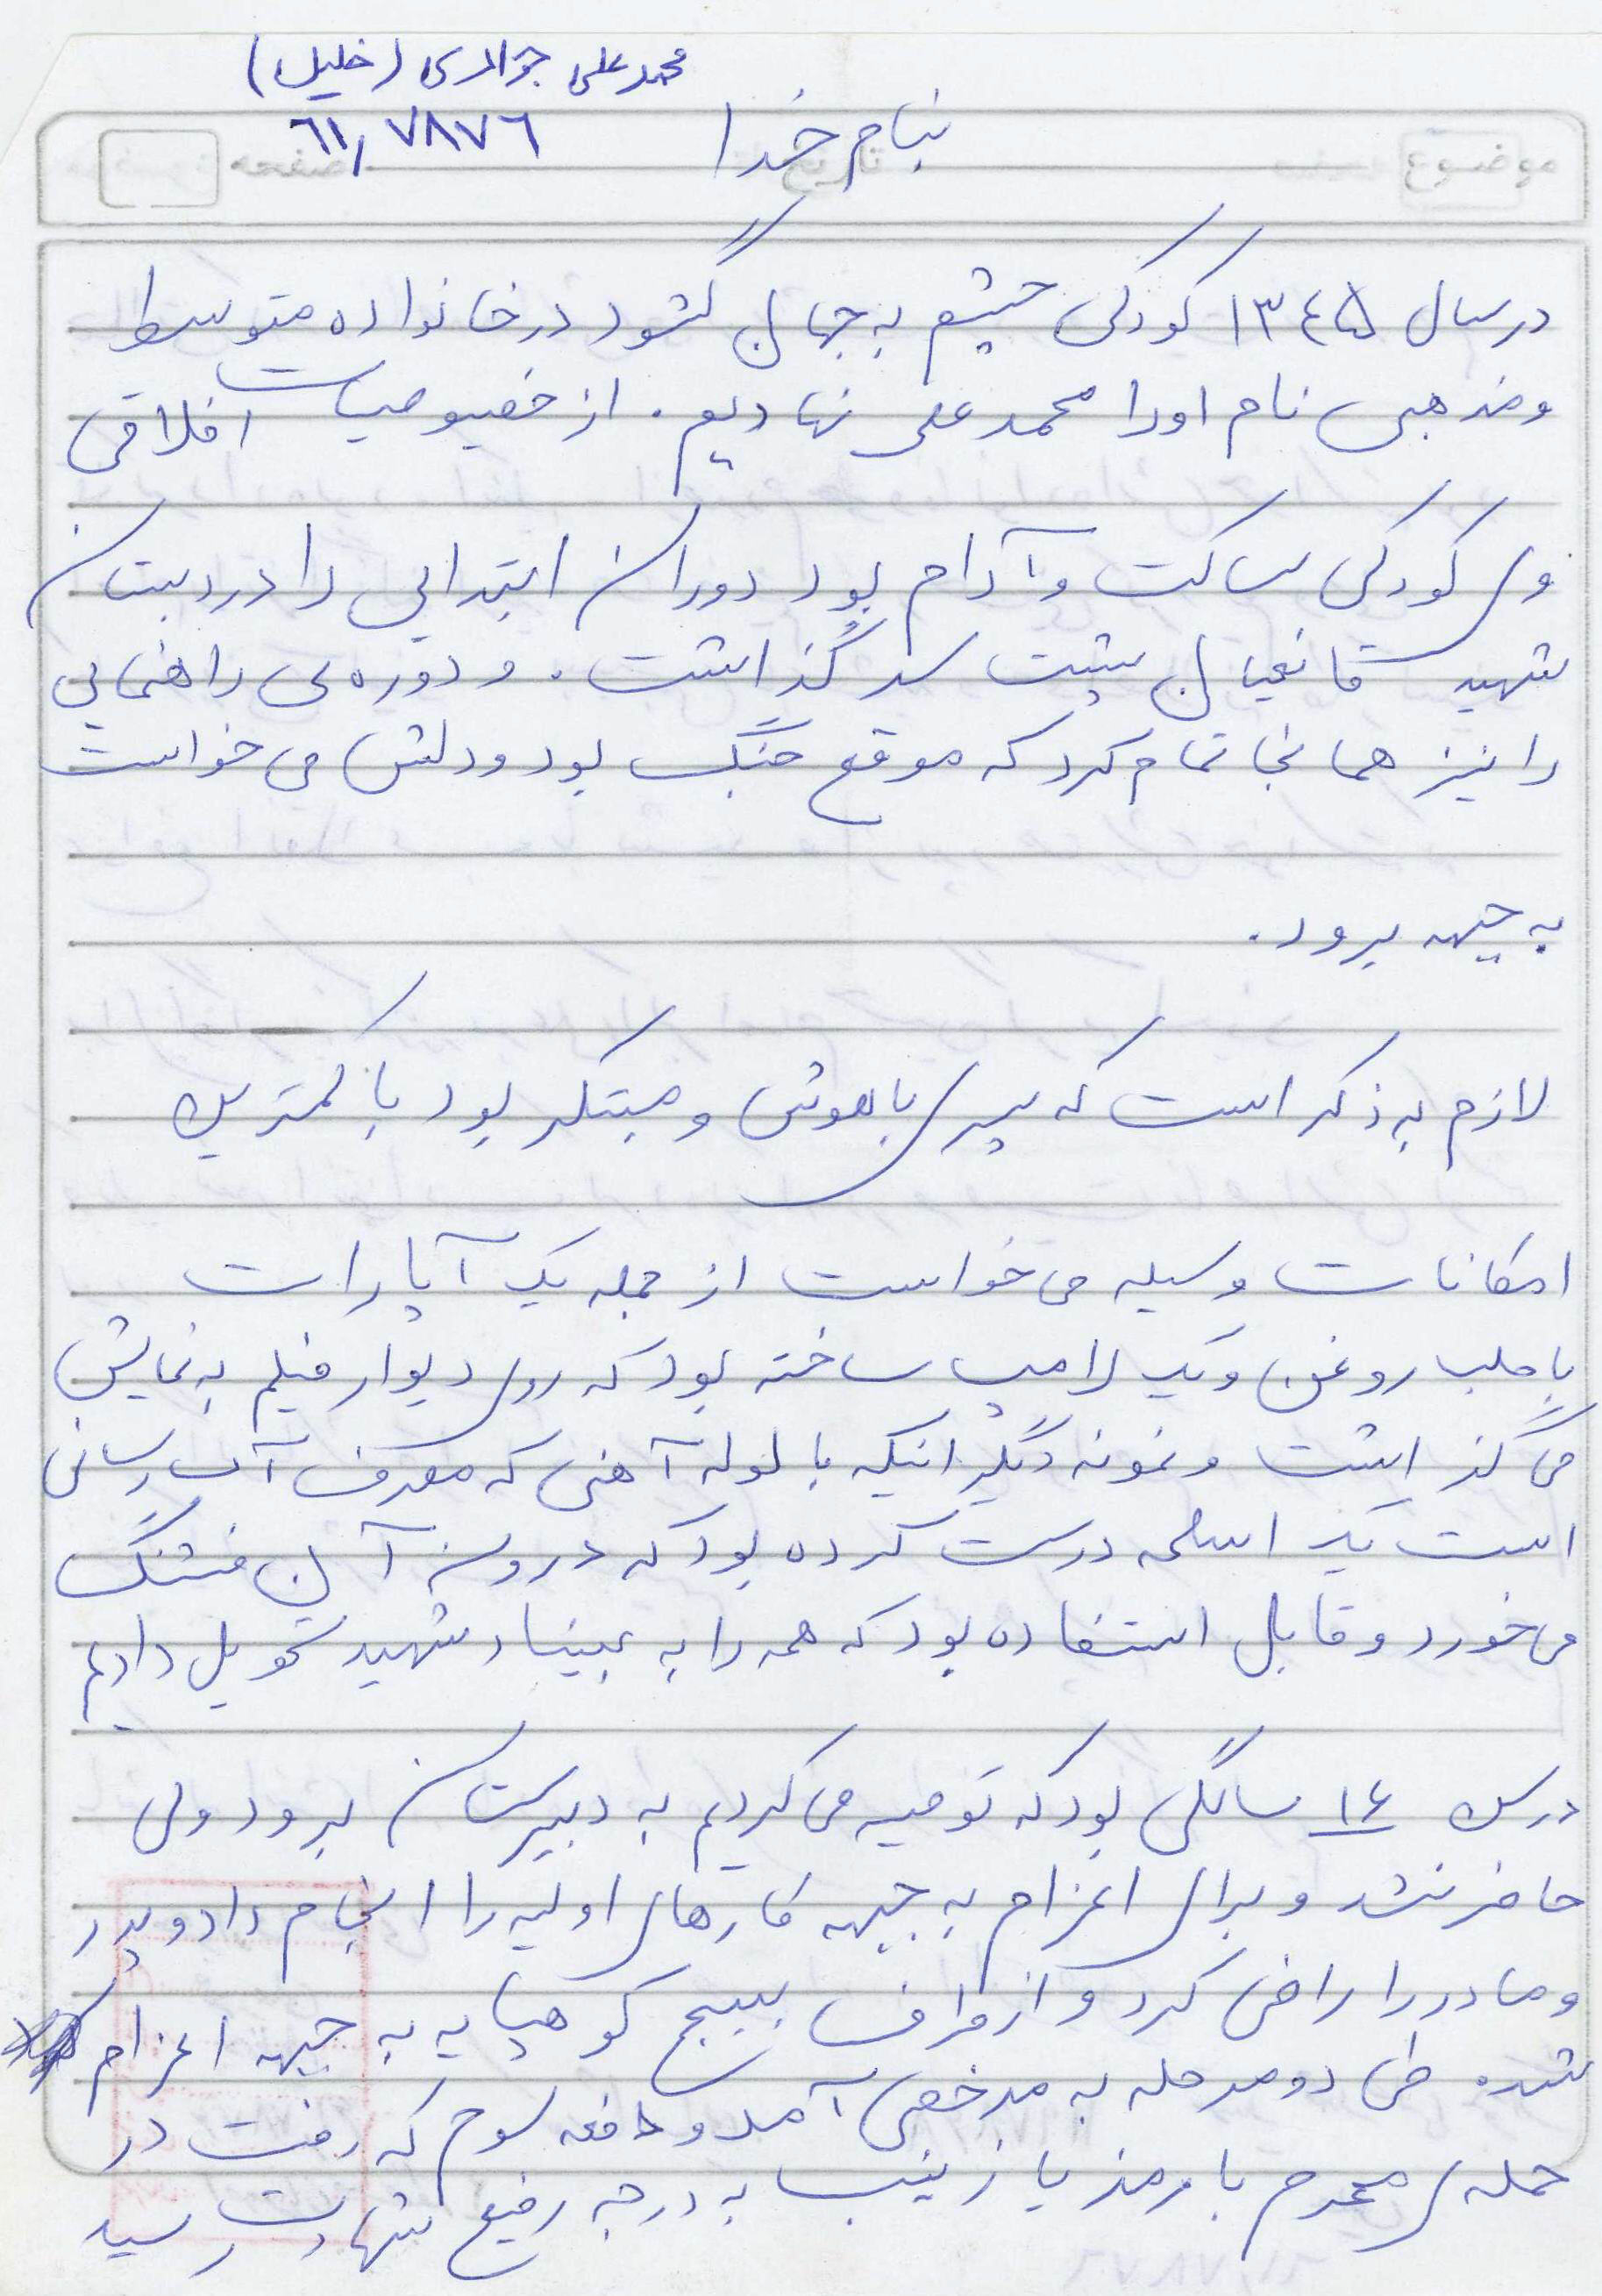 محمدعلی جوادی (خلیل)
بنام خدا ٦١٫٧٨٧٦
موضوع تاریخ صفحه
در سال ١٣٤٥ کودکی چشم به جهان گشود در خانواده متوسط
و مذهبی نام او را محمد علی نهادیم. از خصوصیات اخلاقی
وی کودکی ساکت و آرام بود دوران ابتدایی را در دبستان
شهید قانعیان پشت سر گذاشت. و دوره ی راهنمایی
را نیز همانجا تمام کرد که موقع جنگ بود و دلش می خواست
به جبهه برود.
لازم به ذکر است که پسری باهوش و مبتکر بود با کمترین
امکانات وسیله می خواست از جمله یک آپارات
با حلب روغن و یک لامپ ساخته بود که روی دیوار فیلم به نمایش
می گذاشت و نمونه دیگر اینکه با لوله آهنی که مصرف آب رسانی
است یک اسلحه درست کرده بود که درون آن فشنگ
می خورد و قابل استفاده بود که همه را به بنیاد شهید تحویل دادیم
در سن ١٤ سالگی بود که توصیه می کردیم به دبیرستان برود ولی
حاضر نشد و برای اعزام به جبهه کارهای اولیه را انجام داد و پدر
و مادر را راضی کرد و از طرف بسیج کوهپایه به جبهه اعزام
شد. طی دو مرحله به مرخصی آمد و دفعه سوم که رفت در
حمله ی محرم با رمز یا زینب به درجه رفیع شهادت رسید